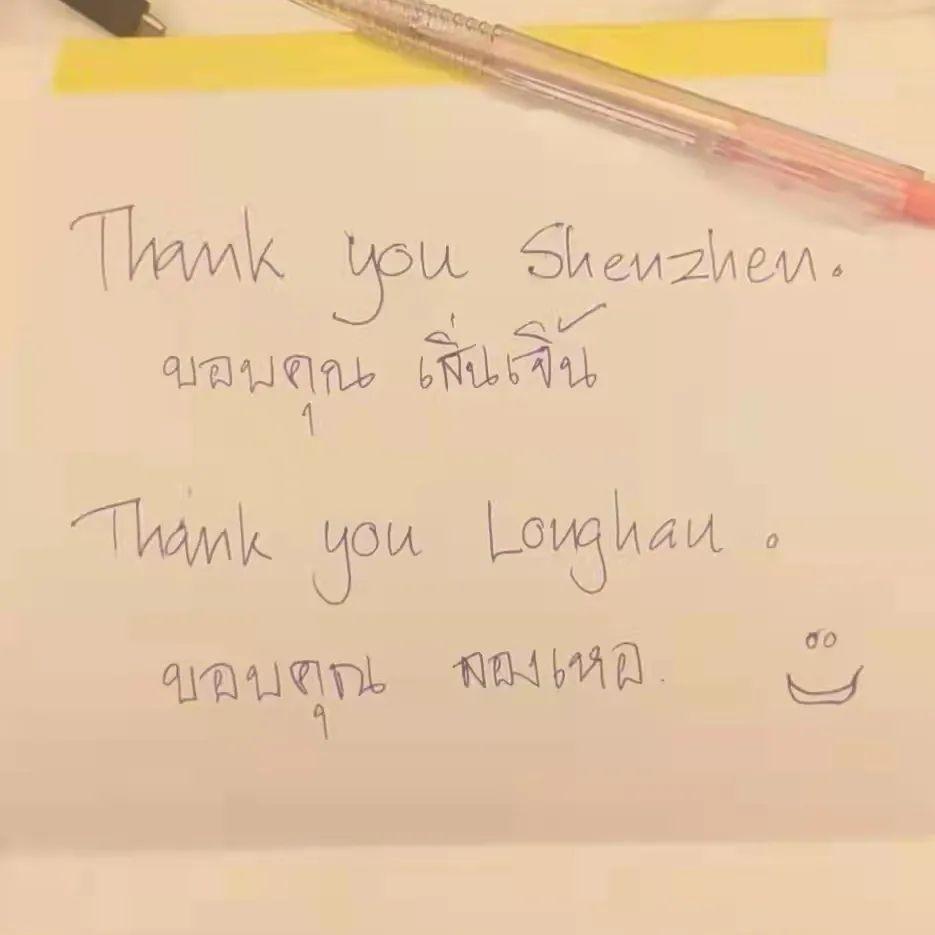 Thank you Shenzhen.
ขอบคุณ เสิ่นเจิ้น
Thank you Longhau.
ขอบคุณ ลองเหอ.